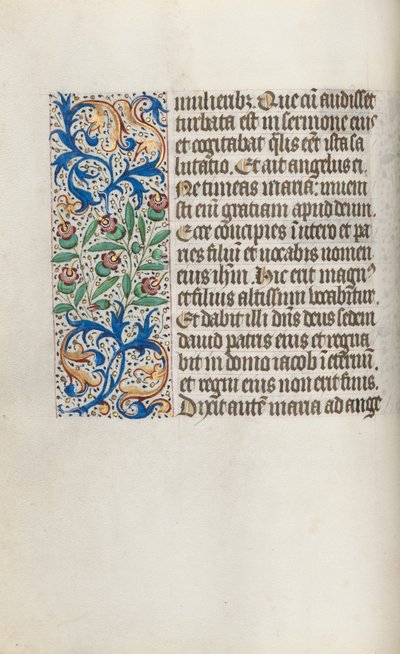 mulierib⁊. Que cū audisset
turbata est in sermone eius
et cogitabat q̄lis eēt ista sa
lutatio. Et ait angelus ei.
Ne timeas maria: inueni
sti eni̅ gratiam apud deum.
Ecce cōcipies i̅ utero et pa
ries filiū et uocabis nomen
eius ih̅m. Hic erit magnꝰ
et filius altissimi vocabitur.
Et dabit illi dn̅s deus sedem
dauid patris eius et regna
bit in domo iacob i̅ eternū.
et regni eius non erit finis.
Dixit autē maria ad ange